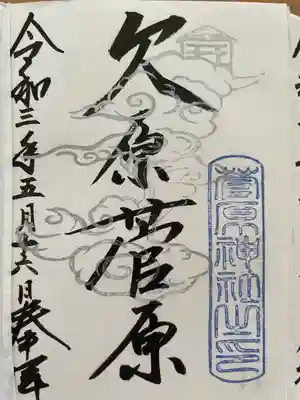 菅原神社之印
久原菅原
令和三年五月廿六日奉拝